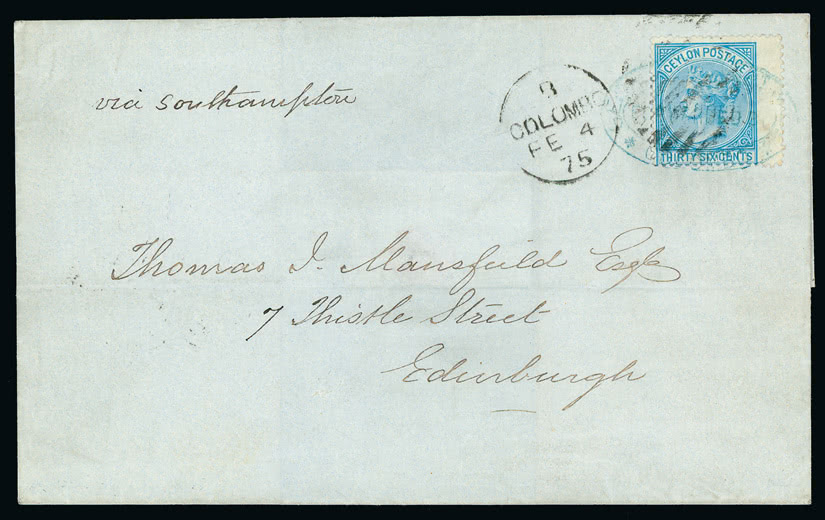 via Southampton
3
COLOMBO
FE 4
75
CEYLON POSTAGE
THIRTY SIX CENTS
Thomas J. Mansfield Esqe
7 Thistle Street
Edinburgh